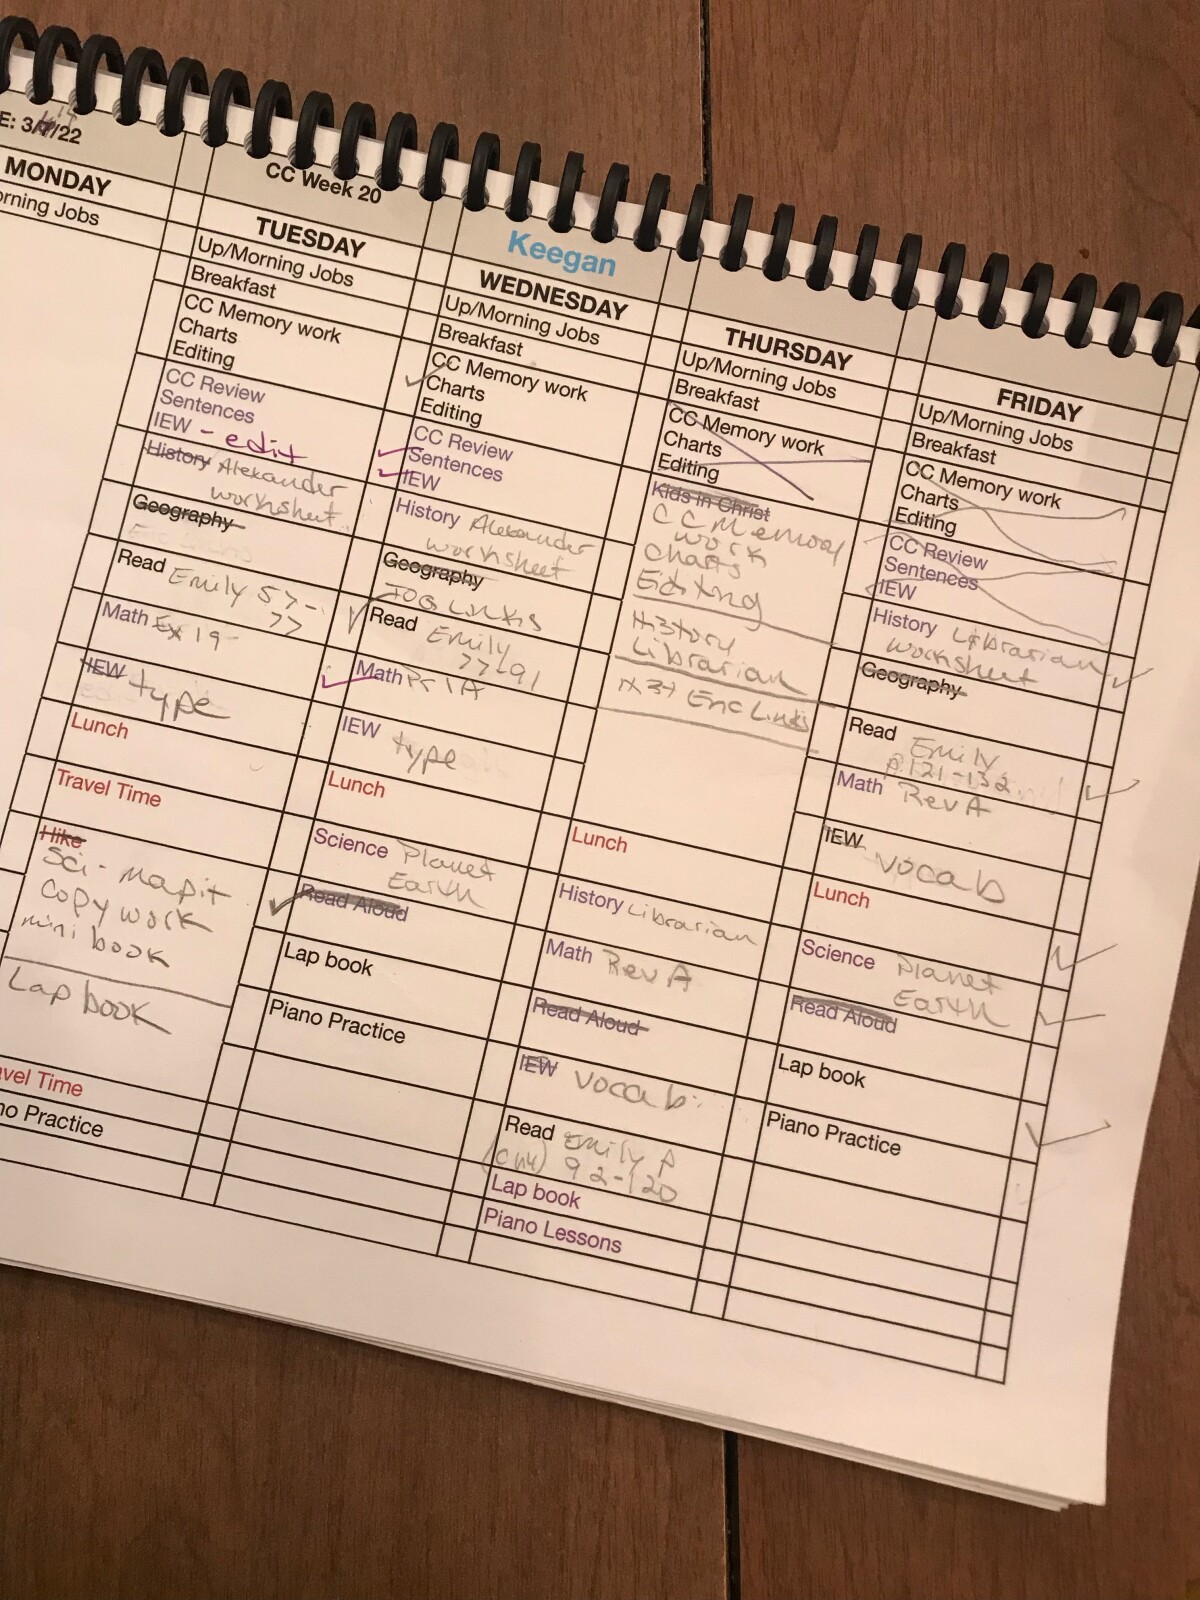 E: 3/ /22
CC Week 20
Keegan
MONDAY
orning Jobs
TUESDAY
Up/Morning Jobs
Breakfast
CC Memory work
Charts
Editing
CC Review
Sentences
IEW - edit
History Alexander
worksheet
Geography
Read Emily 57-
77
Math Ex 19
IEW type
Lunch
Travel Time
Hike
Sci - mapit
copy work
mini book
Lap book
avel Time
no Practice
WEDNESDAY
Up/Morning Jobs
Breakfast
CC Memory work
Charts
Editing
CC Review
Sentences
IEW
History Alexander
worksheet
Geography
Links
Read Emily
77-91
Math Pr 1A
IEW type
Lunch
Science Planet
Earth
Read Aloud
Lap book
Piano Practice
THURSDAY
Up/Morning Jobs
Breakfast
CC Memory work
Charts
Editing
Kids in Christ
CC Memory
work
Charts
Editing
History
Librarian
Eric Links
Lunch
History Librarian
Math Rev A
Read Aloud
IEW vocab
Read Emily p
(ch4) 92-120
Lap book
Piano Lessons
FRIDAY
Up/Morning Jobs
Breakfast
CC Memory work
Charts
Editing
CC Review
Sentences
IEW
History Librarian
worksheet
Geography
Read Emily
p.121-132
Math Rev A
IEW vocab
Lunch
Science Planet
Earth
Read Aloud
Lap book
Piano Practice